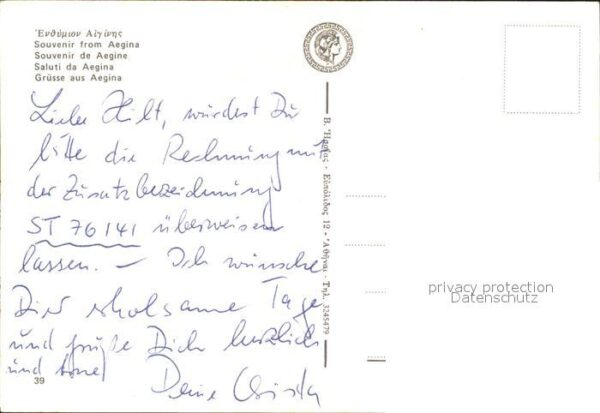 Ἐνθύμιον Αἰγίνης
Souvenir from Aegina
Souvenir de Aegine
Saluti da Aegina
Grüsse aus Aegina
Liebe Hilt, würdest Du
bitte die Rechnung mit
der Zusatzbezeichnung
ST 76 141 überweisen
lassen. – Ich wünsche
Dir erholsame Tage
und grüße Dich herzlich
und
Deine Christa
39
Εὐπόλιδος 12 - Ἀθῆναι - Τηλ. 3245479
privacy protection
Datenschutz